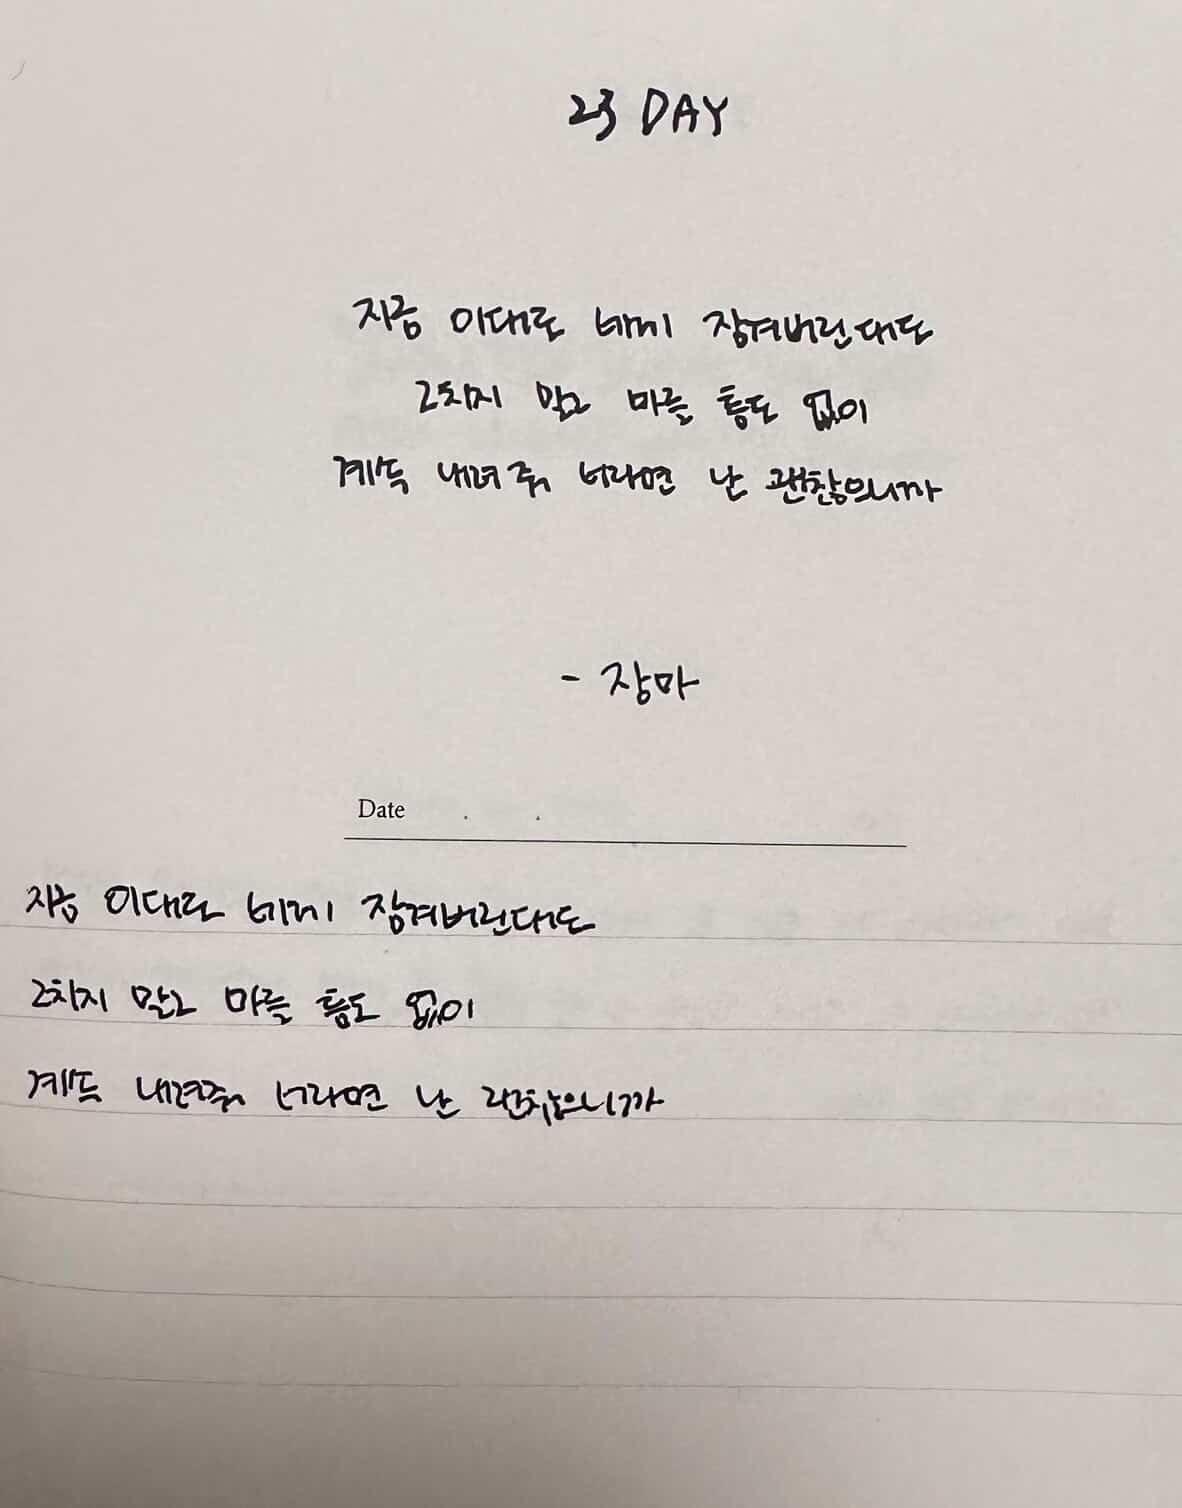 23 DAY
지금 이대로 네게 잠겨버린대도
그치지 말고 마를 틈도 없이
계속 내려 줘 너라면 난 괜찮으니까
- 장마
Date . .
지금 이대로 네게 잠겨버린대도
그치지 말고 마를 틈도 없이
계속 내려줘 너라면 난 괜찮으니까